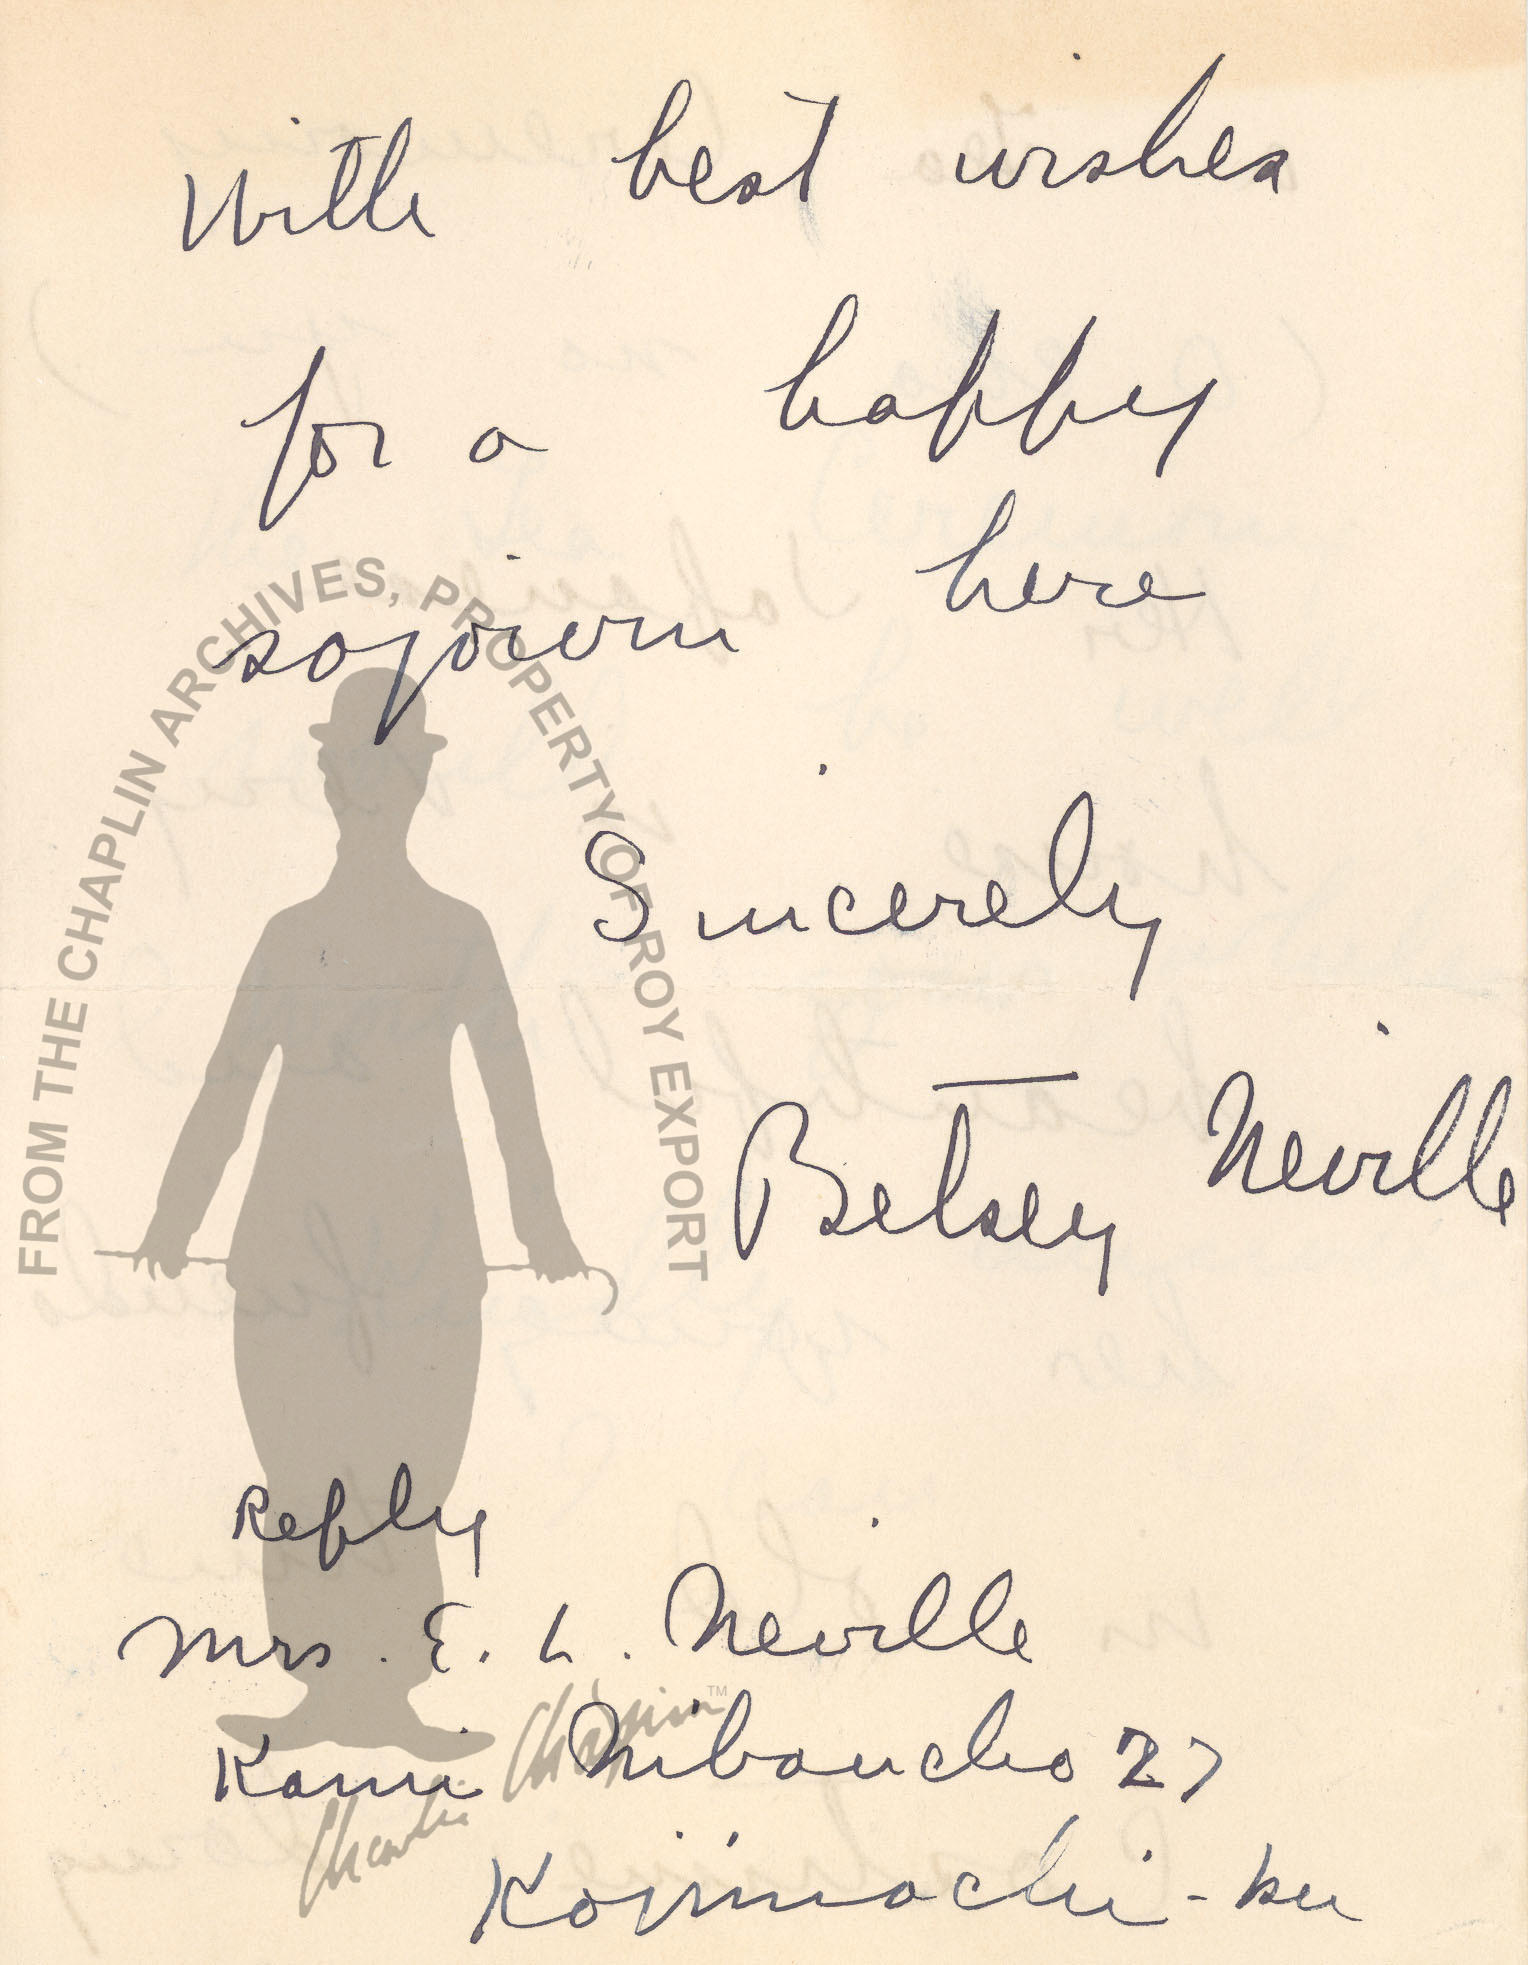 With best wishes
for a happy
sojourn here
Sincerely
Betsey Neville
Reply
Mrs. E. L. Neville
Kami Nibancho 27
Kojimachi-ku
FROM THE CHAPLIN ARCHIVES, PROPERTY OF ROY EXPORT
Charlie Chaplin™